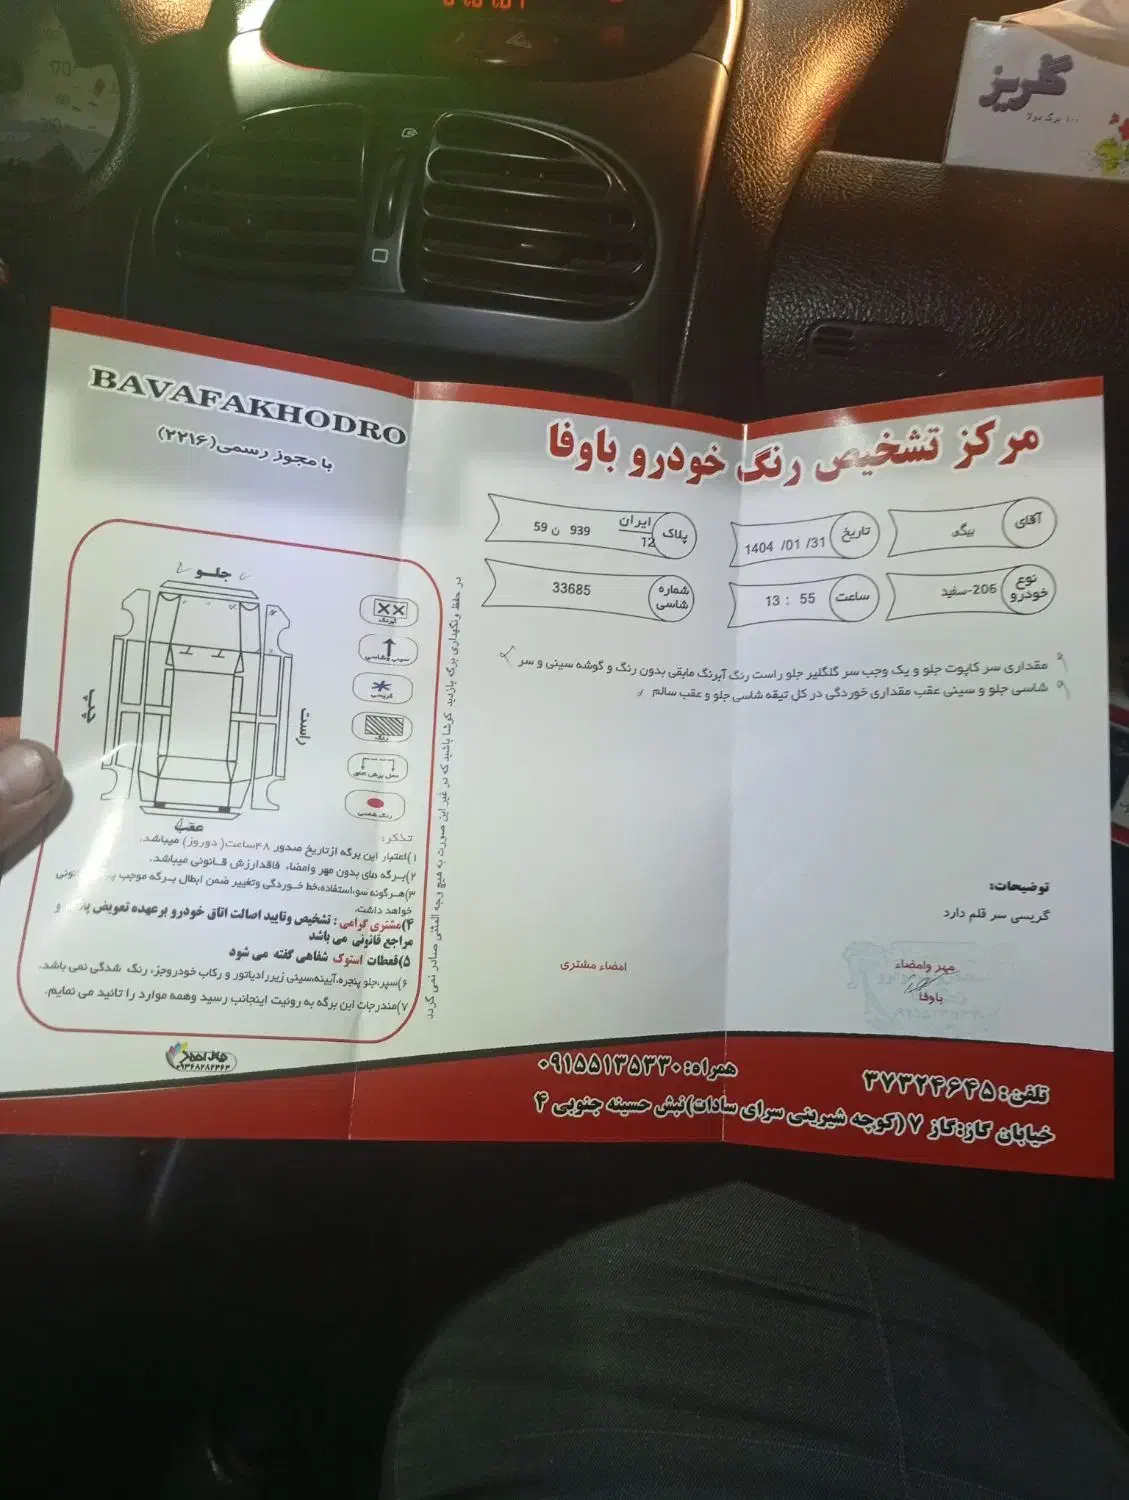 گلریز
۱۰۰ برگ دولا
BAVAFAKHODRO
با مجوز رسمی(۲۲۱۶)
مرکز تشخیص رنگ خودرو باوفا
آقای
بیگی
تاریخ
1404 /01 /31
پلاک
ایران
12
939 ن 59
نوع خودرو
206-سفید
ساعت
13 : 55
شماره شاسی
33685
مقداری سر کاپوت جلو و یک وجب سر گلگلیر جلو راست رنگ آبرنگ مابقی بدون رنگ و گوشه سینی و سر
شاسی جلو و سینی عقب مقداری خوردگی در کل تیقه شاسی جلو و عقب سالم
توضیحات:
گریسی سر قلم دارد
مهر وامضاء
باوفا
امضاء مشتری
جلو
چپ
راست
عقب
آبرنگ
سینی وشاسی
گریسی
رنگ
محل برش اتاق
رنگ شاسی
در حفظ ونگهداری برگه بازدید کوشا باشید که در غیر این صورت به هیچ وجه المثنی صادر نمی گردد
تذکر:
۱)اعتبار این برگه ازتاریخ صدور ۴۸ساعت( دوروز) میباشد.
۲)برگه های بدون مهر وامضاء فاقدارزش قانونی میباشد.
۳)هرگونه سو،استفاده،خط خوردگی وتغییر ضمن ابطال برگه موجب
خواهد داشت.
۴)مشتری گرامی: تشخیص وتایید اصالت اتاق خودرو برعهده تعویض پلاک و
مراجع قانونی می باشد
۵)قطعات استوک شفاهی گفته می شود
۶)سپر،جلو پنجره،آیینه،سینی زیررادیاتور و رکاب خودروجز، رنگ شدگی نمی باشد.
۷)مندرجات این برگه به روئیت اینجانب رسید وهمه موارد را تائید می نمایم.
تلفن: ۳۷۳۲۴۶۴۵
همراه: ۰۹۱۵۵۱۳۵۳۳۰
خیابان گاز:گاز ۷(کوچه شیرینی سرای سادات)نبش حسینه جنوبی ۴